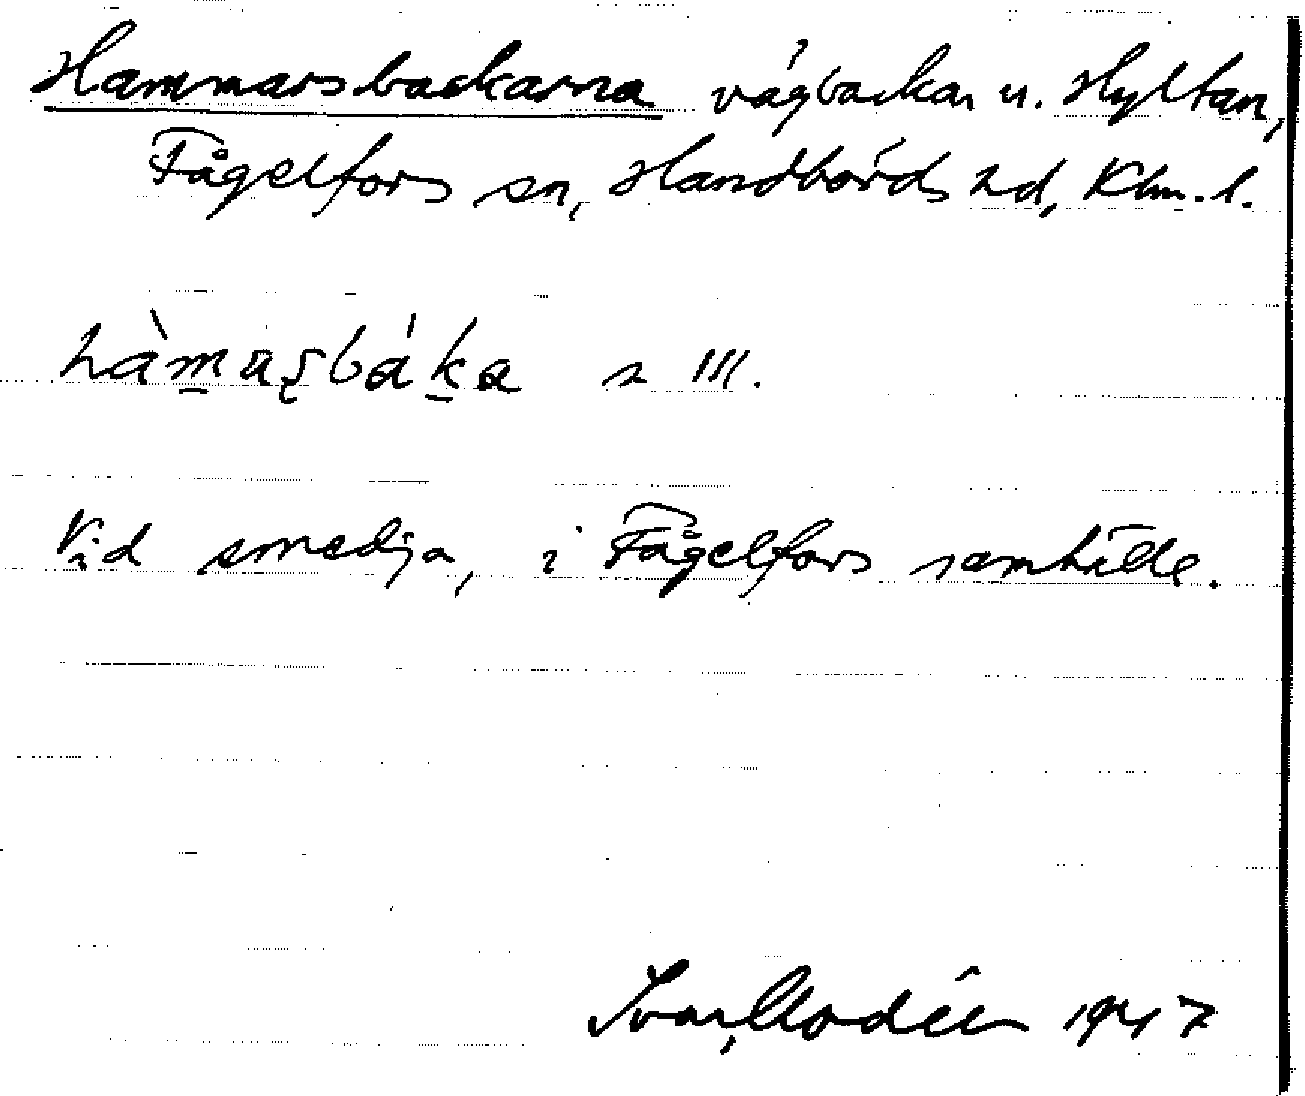 Hammarsbackarna vägbackar u. Hyltan,
Fågelfors sn, Handbörds hd, Klm. l.
hàmarsbáka n III.
Vid smedja, i Fågelfors samhälle.
Ivar Modéer 1947